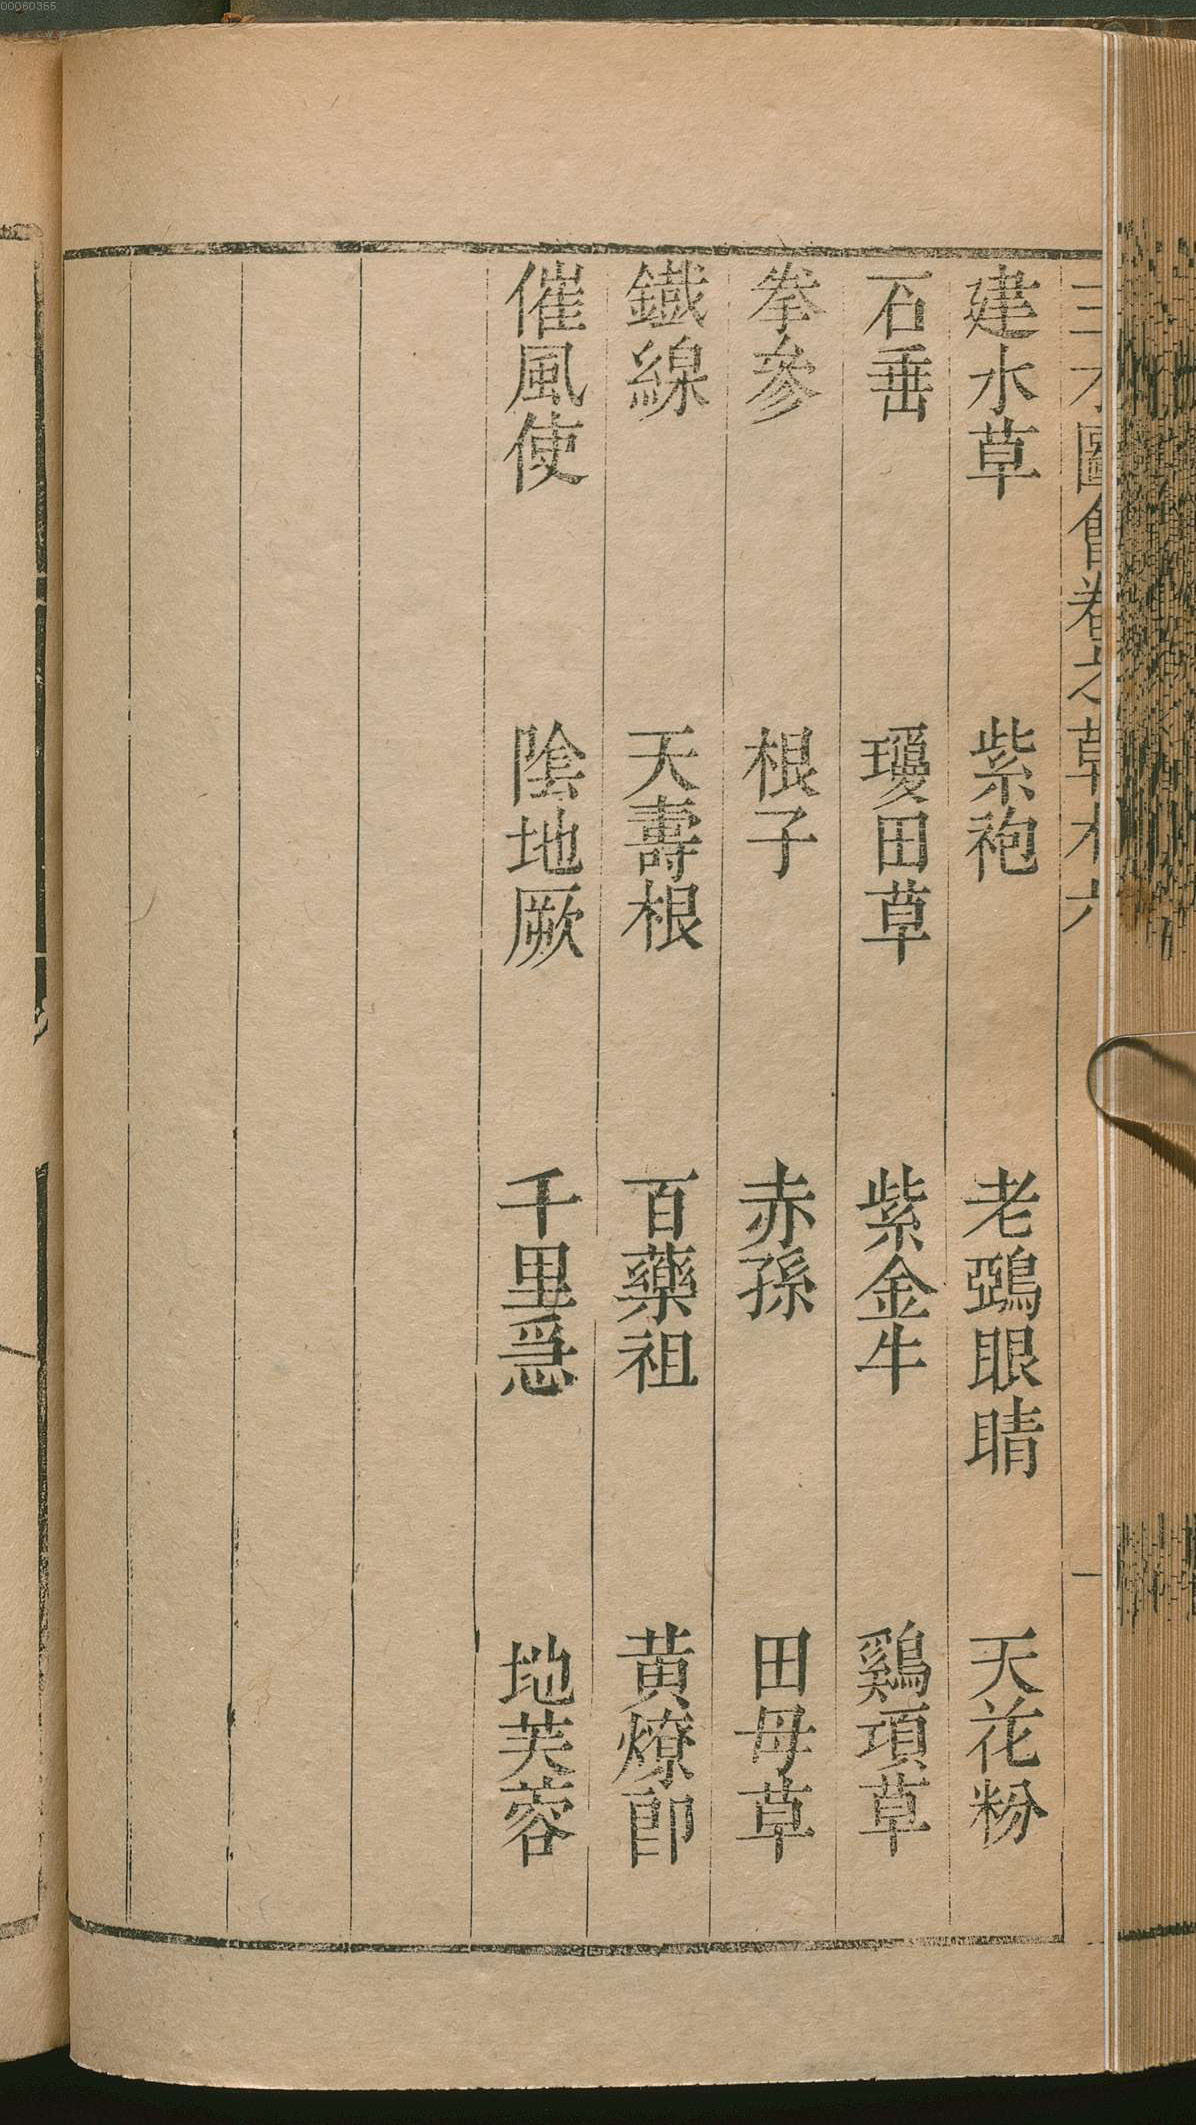 00060355
三才圖會卷之草木六
一
建水草 紫袍 老鵶眼睛 天花粉
石垂 瓊田草 紫金牛 鷄項草
拳參 根子 赤孫 田母草
鐵線 天壽根 百藥祖 黃燎郎
催風使 陰地厥 千里急 地芙蓉